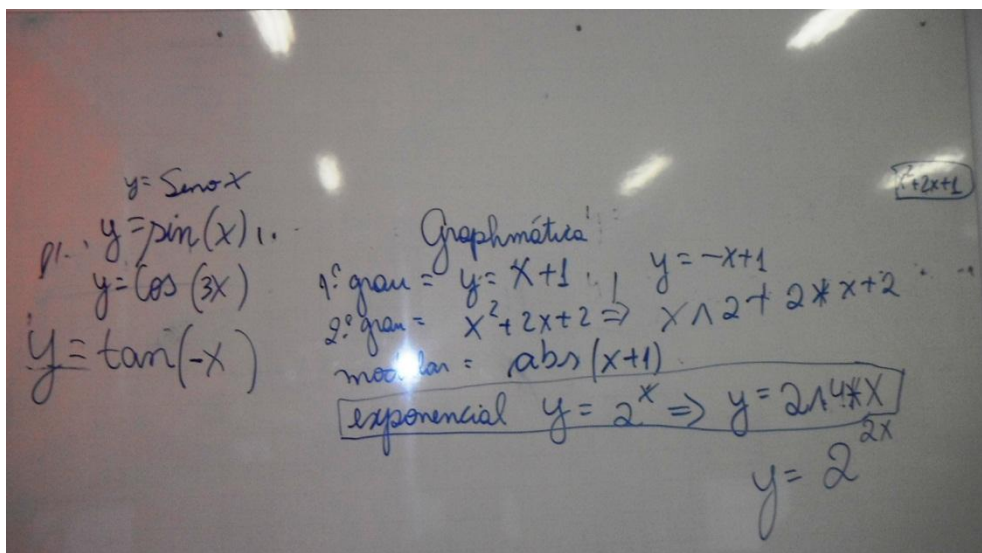 y = Seno x
y = sin(x)
y = Cos (3x)
y = tan(-x)
x²+2x+1
Graphmática
1º grau = y = x+1 y = -x+1
2º grau = x²+2x+2 ⇒ x∧2+2*x+2
modular = abs(x+1)
exponencial y = 2^x ⇒ y = 2∧4*x
y = 2^2x